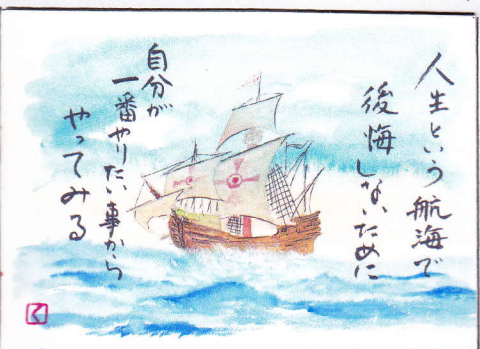 人生という航海で
後悔しないために
自分が
一番やりたい事から
やってみる
く